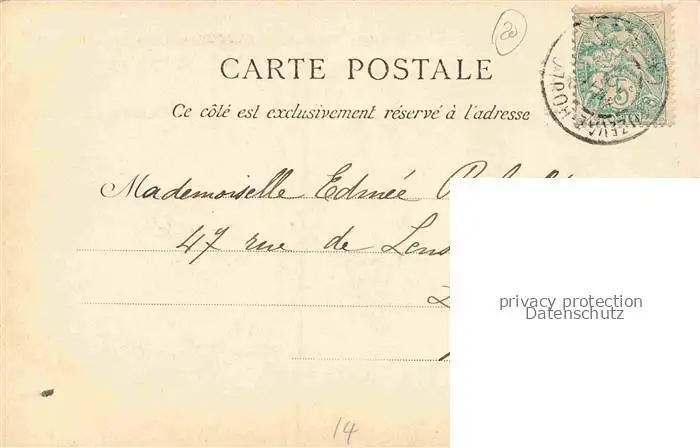 CARTE POSTALE
Ce côté est exclusivement réservé à l'adresse
Mademoiselle Edmée
47 rue de Lens
privacy protection
Datenschutz
14